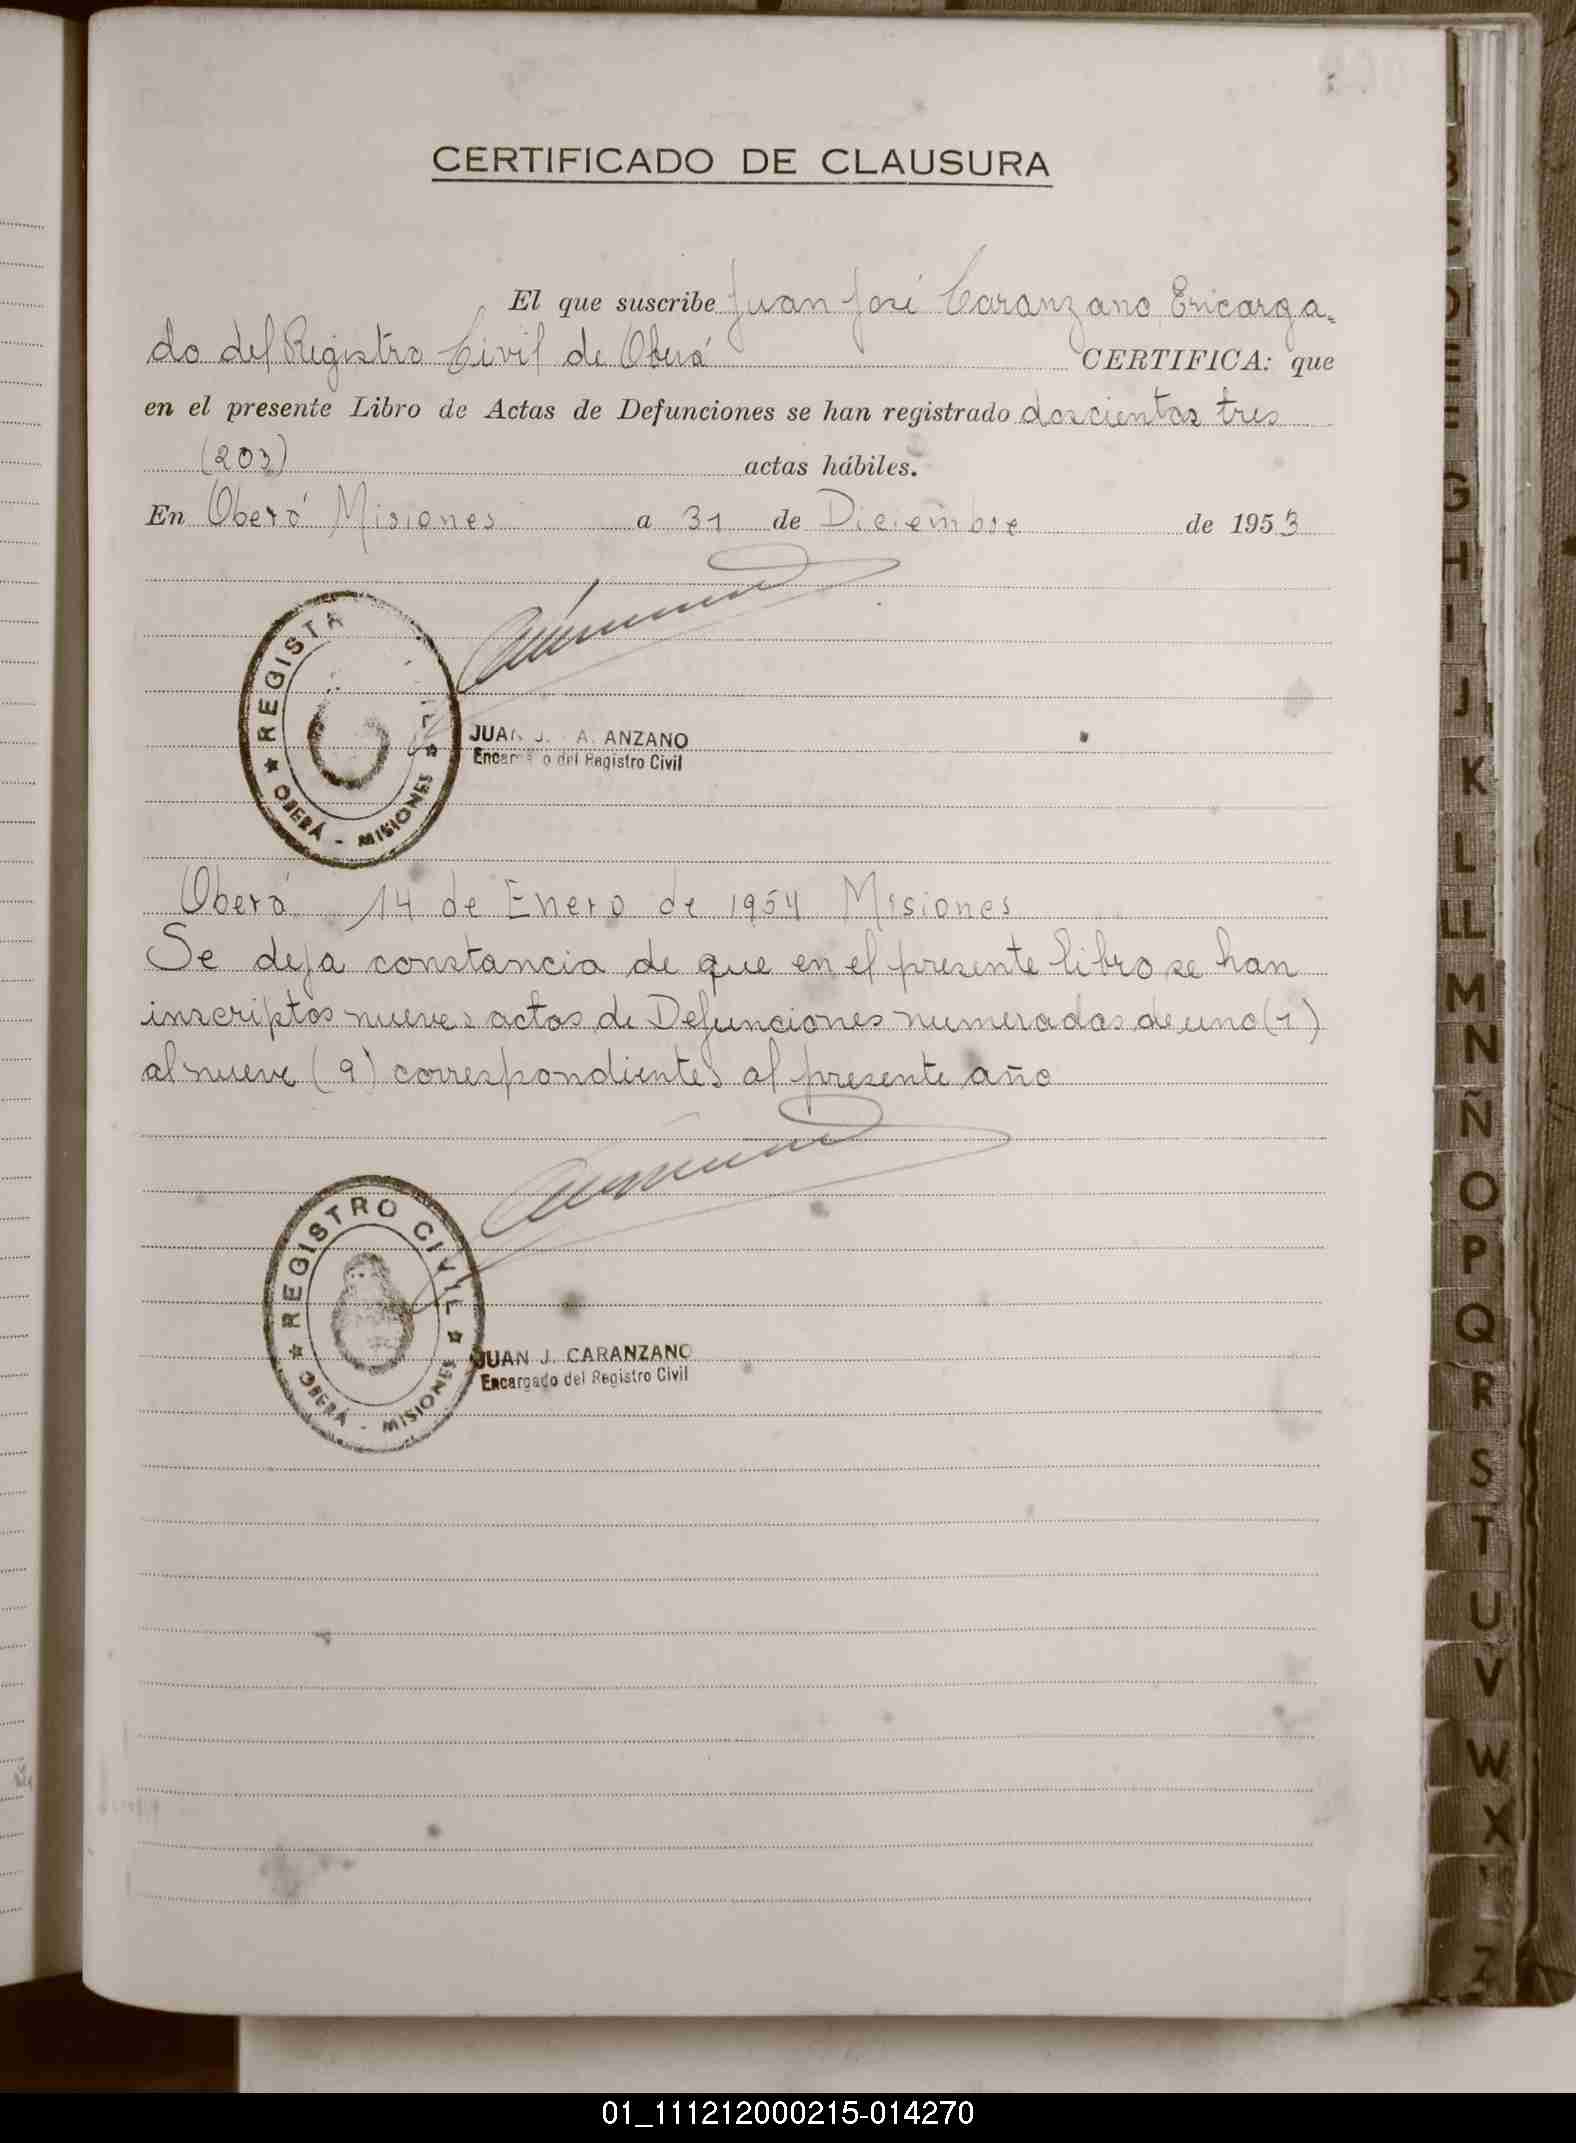 CERTIFICADO DE CLAUSURA
El que suscribe Juan José Caranzano Encarga-
do del Registro Civil de Oberá CERTIFICA: que
en el presente Libro de Actas de Defunciones se han registrado doscientos tres
(203) actas hábiles.
En Oberá Misiones a 31 de Diciembre de 1953
REGISTR
OBERÁ - MISIONES
JUAN J. A ANZANO
Encar o del Registro Civil
Oberá 14 de Enero de 1954 Misiones
Se deja constancia de que en el presente libro se han
inscriptos nueve actas de Defunciones numeradas de uno (1)
al nueve (9) correspondientes al presente año
REGISTRO CIVIL
OBERÁ - MISIONES
JUAN J. CARANZANO
Encargado del Registro Civil
B
C
D
E
F
G
H
I
J
K
L
LL
M
N
Ñ
O
P
Q
R
S
T
U
V
W
X
Z
01_111212000215-014270